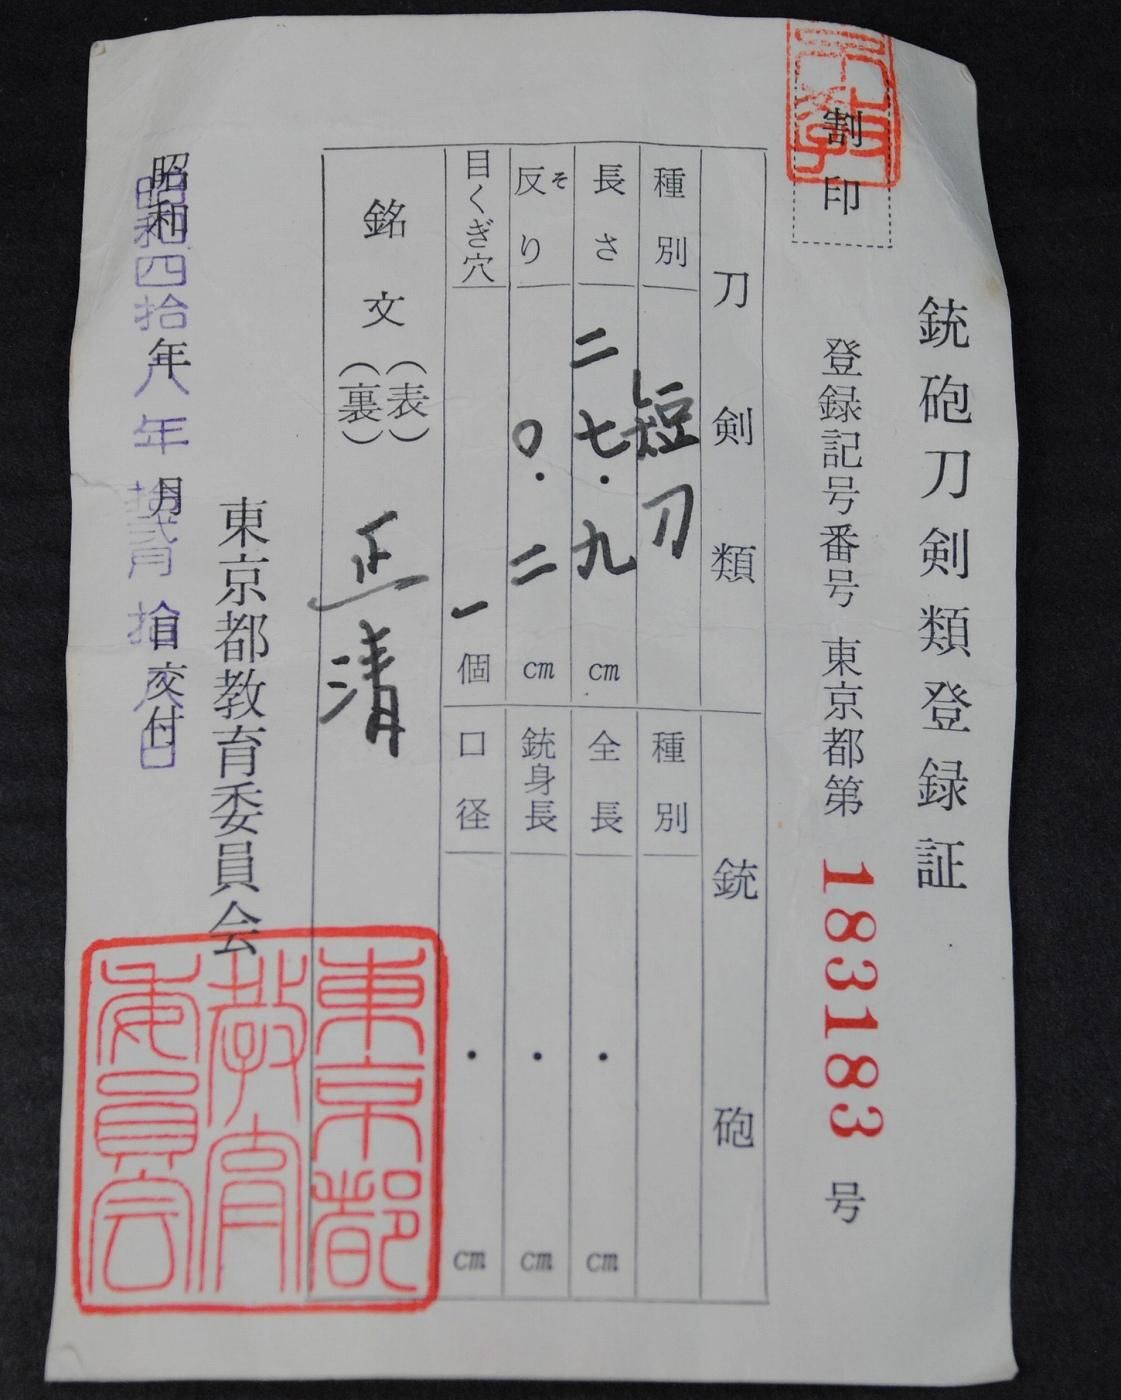 銃砲刀剣類登録証
割印
登録記号番号 東京都第 183183 号
刀剣類
銃砲
種別 短刀
種別
長さ 二七・九 cm
全長 ・ cm
反り そ 〇・二 cm
銃身長 ・ cm
目くぎ穴 一 個
口径 ・ cm
銘文 (表) (裏) 正清
東京都教育委員会
東京都
教育
委員会
昭和 年 月 日交付
昭和四拾八年 拾弐月 拾